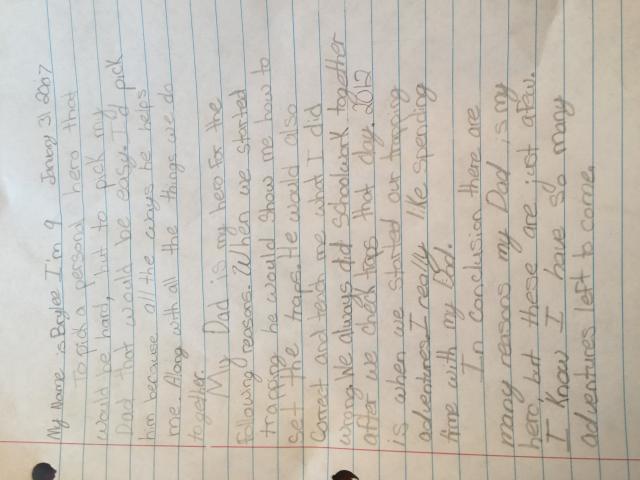 My Name is Baylee I'm 9 January 31, 2017
To pick a personal hero that
would be hard, but to pick my
Dad that would be easy. I'd pick
him because all the ways he helps
me. Along with all the things we do
together.
My Dad is my hero for the
following reasons. When we started
trapping he would show me how to
set the traps. He would also
correct and teach me what I did
wrong. We always did schoolwork together
after we check traps that day. 2012
is when we started our trapping
adventures. I really like spending
time with my Dad.
In conclusion there are
many reasons my Dad is my
hero, but these are just a few.
I know I have so many
adventures left to come.